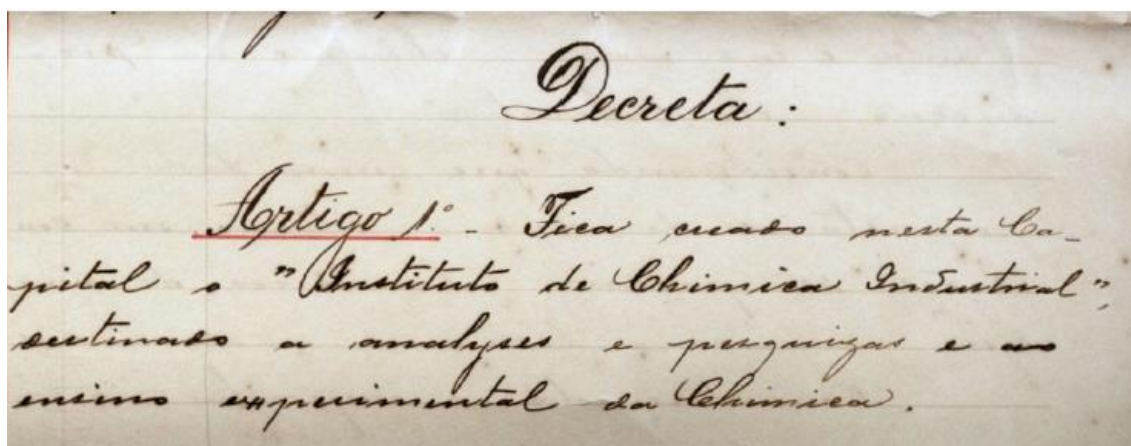 Decreta:
Artigo 1º - Fica creado nesta Ca-
pital o "Instituto de Chimica Industrial",
destinado a analyses e pesquizas e ao
ensino experimental da Chimica.